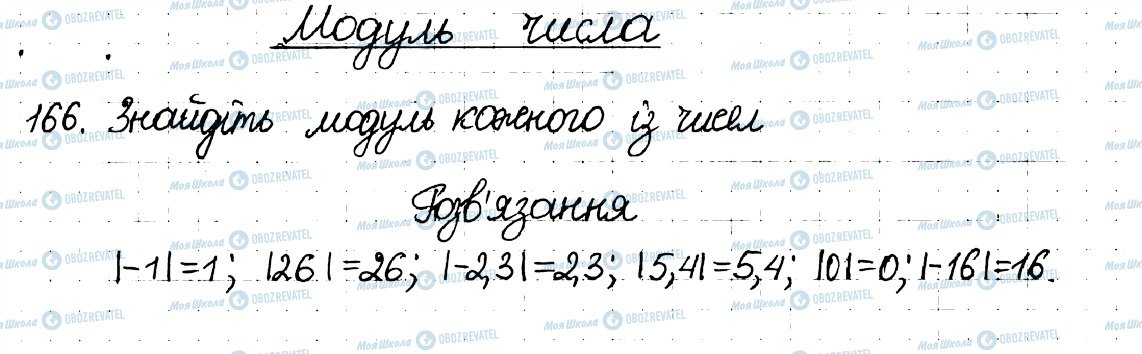 Модуль числа
166. Знайдіть модуль кожного із чисел.
Розв'язання
|-1|=1; |26|=26; |-2,3|=2,3; |5,4|=5,4; |0|=0; |-16|=16.